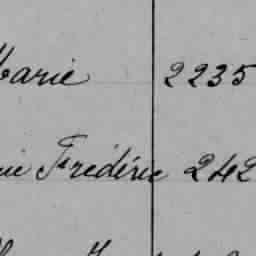 Marie 2235
Frédéric 242